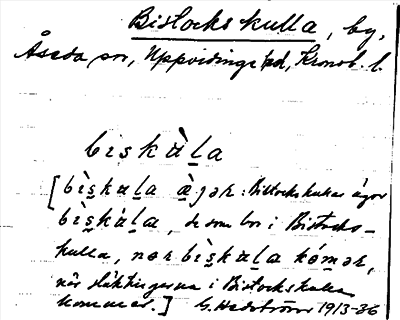 Bistockskulla, by,
Åseda sn, Uppvidinge hd, Kronob. l.
biskù̱la
[bìs̱ku̱la à̱gər: Bistockskullas ägor
bìs̱kù̱la, de som bor i Bistocks-
kulla, nər bìs̱ku̱la kóm̱ər,
när släktingarna i Bistockskulla
kommer.] G. Hedström 1913-36